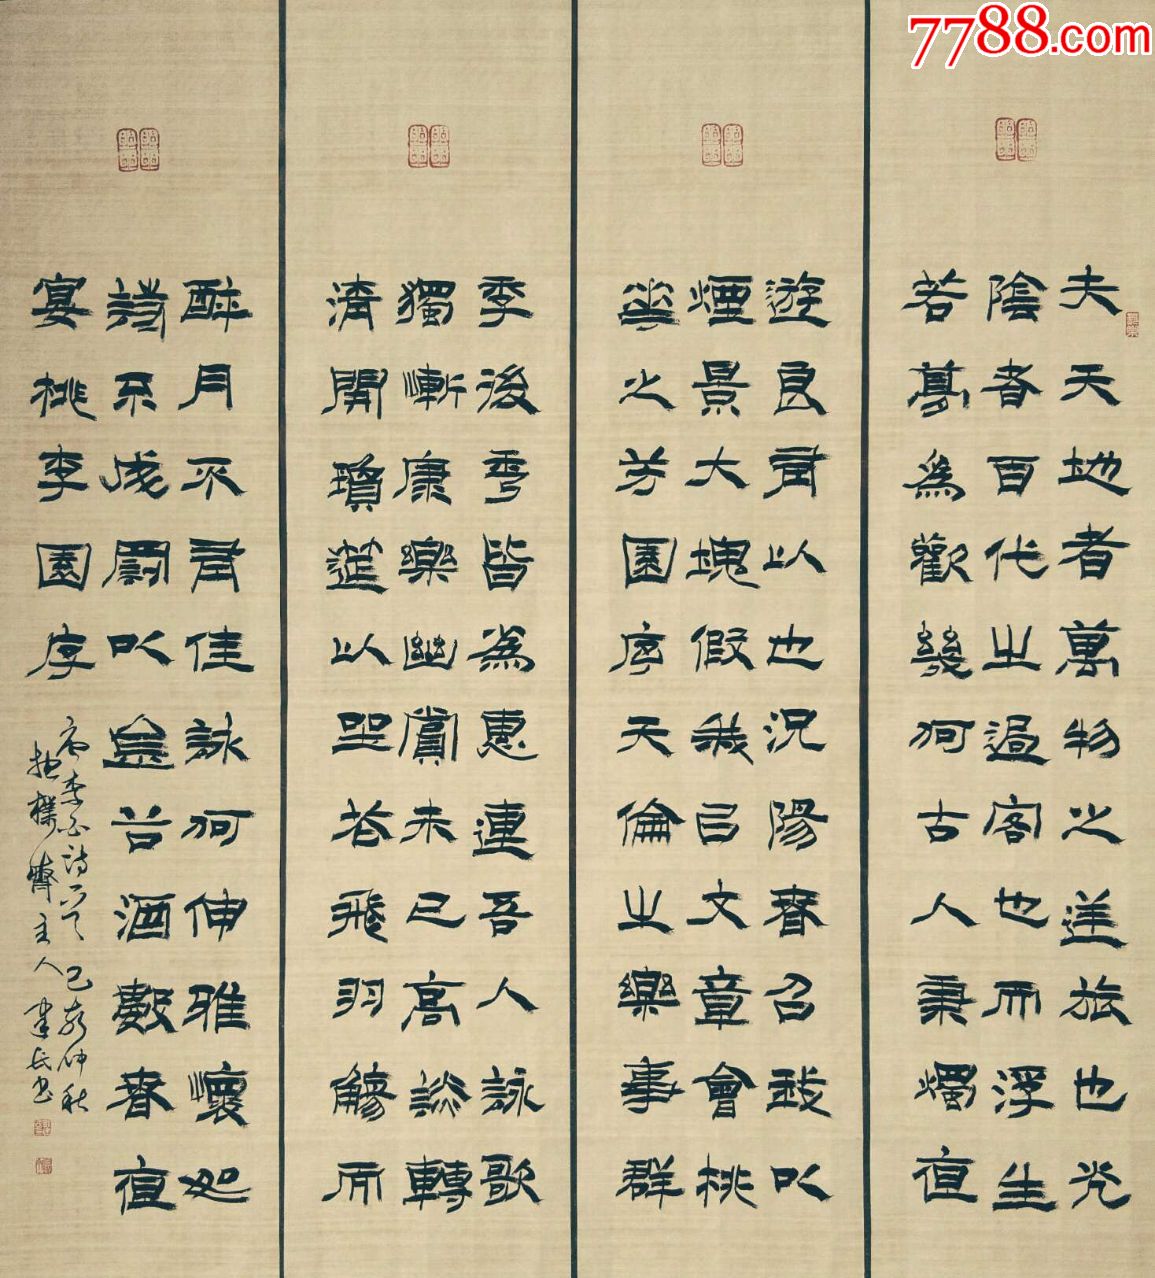 7788.com
夫天地者萬物之逆旅也光
陰者百代之過客也而浮生
若夢為歡幾何古人秉燭亱
遊良有以也況陽春召我以
煙景大塊假我以文章會桃
華之芳園序天倫之樂事群
季俊秀皆為惠連吾人詠歌
獨慚康樂幽賞未已高談轉
清開瓊筵以坐花飛羽觴而
醉月不有佳詠何伸雅懷如
詩不成罰以金谷酒數春亱
宴桃李園序
李白 己亥仲秋
抱樸齋主人 書